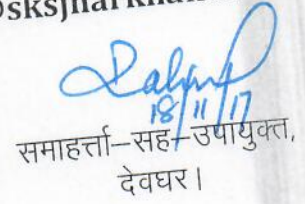 18/11/17
समाहर्त्ता–सह–उपायुक्त,
देवघर।